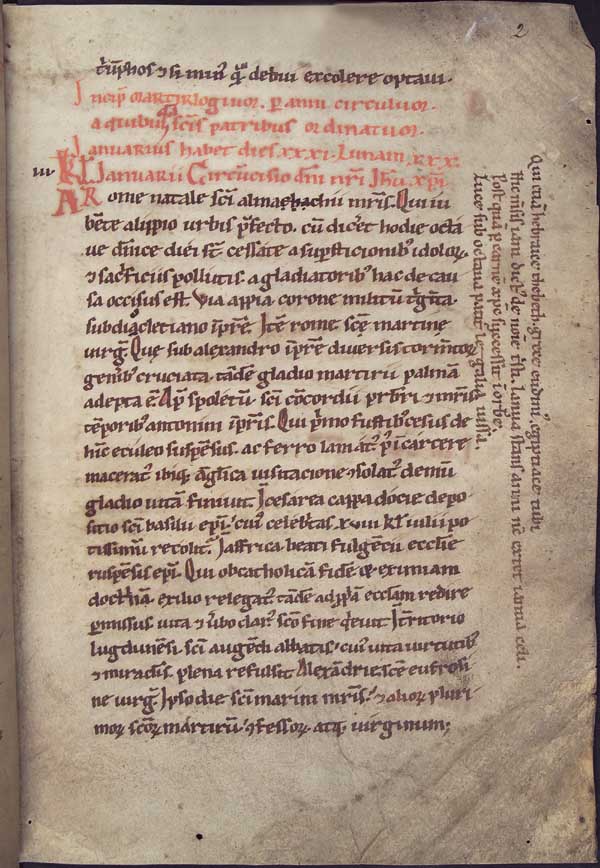 2
t͛ūphos ⁊ si min᷒ qͣ debui excolere optaui.
Incip̄ martirlogiuꝫ. ꝑ annū circuluꝫ.
a quibuſ sc̄is patribus ordinatuꝫ.
Januarius habet dies xxxi. Lunam. xxx.
iii. Kl. Januarii Circūcisio dn̄i nr̄i Jhū xp̄i.
A Rome natale sc̄i almachii mr̄is. Qui iu
bente alippio urbis p̄fecto. cū dicēt hodie octa
ue dn̄ice diei st̄. cessate a suꝑsticionib᷒ idoloꝝ.
⁊ sac̄ficiis pollutis. a gladiatorib᷒ hac de cau
sa occisus est. Via appia corone militū t͛ginta.
sub diacletiano īpre. Itē rome. sc̄e martine
uirg̃. Quę sub alexandro īpre diuersis tormtoꝝ
genib᷒ cruciata. tandē gladio martirii palmā
adepta ē. Ap̄ spoletū. sc̄i cōcordii pr̄bri ⁊ mr̄is
tēporib᷒ antonini īpris. Qui p̄mo fustib᷒ cesus de
hīc eculeo suspensus. ac ferro laniat᷒. p̄ī carcere
macerat᷒. ibiq; anglica uisitacione ɔsolat᷒. demū
gladio uitā finiuit. I cesarea cappadocie. depo
sitio sc̄i basilii ep̄i. cui᷒ celeb͛tas. xviii kl iulii po
tissimū recolit᷒. I affrica. beati fulgentii ecclīe
ruspensis ep̄i. Qui ob catholicā fidē ⁊ eximiam
doct͛nam. exilio relegat᷒. tādē ad ꝓp̄am eccl̄am redire
ꝑmissus. uita ⁊ ūbo clar᷒. sc̄o fine qͥeuit. I t͛ritorio
lugdunēsi. sc̄i augendi abbatis. cui᷒ uita uirtutib᷒
⁊ miraclis. plena refulsit. Alexādrie. sc̄e eufrosi
ne uirg̃. Ipso die sc̄i marini mr̄is. ⁊ alioꝝ pluri
moꝝ sc̄oꝝ martirū. ɔfessoꝝ. atq; uirginum;
Qui cū hebraice thebeth. grece eudini. egiptiace tubi
postqͣ ꝑ carnē xp̄c successit ī orbe.
Luce sub octaua patit᷒